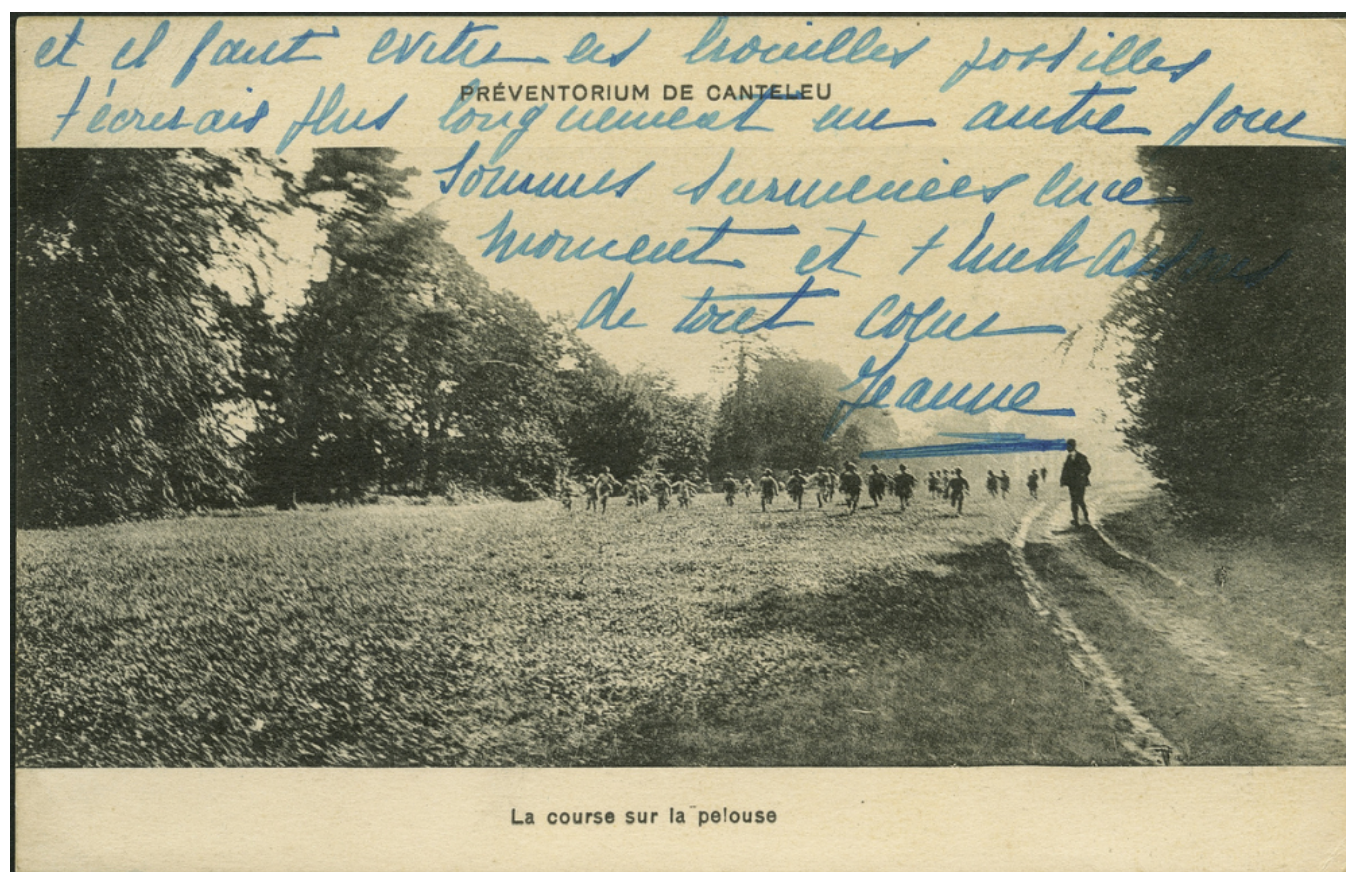 et il faut eviter les brouilles
PRÉVENTORIUM DE CANTELEU
t'écrirais plus longuement un autre jour
sommes surmenées
moment et t'embrassons
de tout coeur
Jeanne
La course sur la pelouse